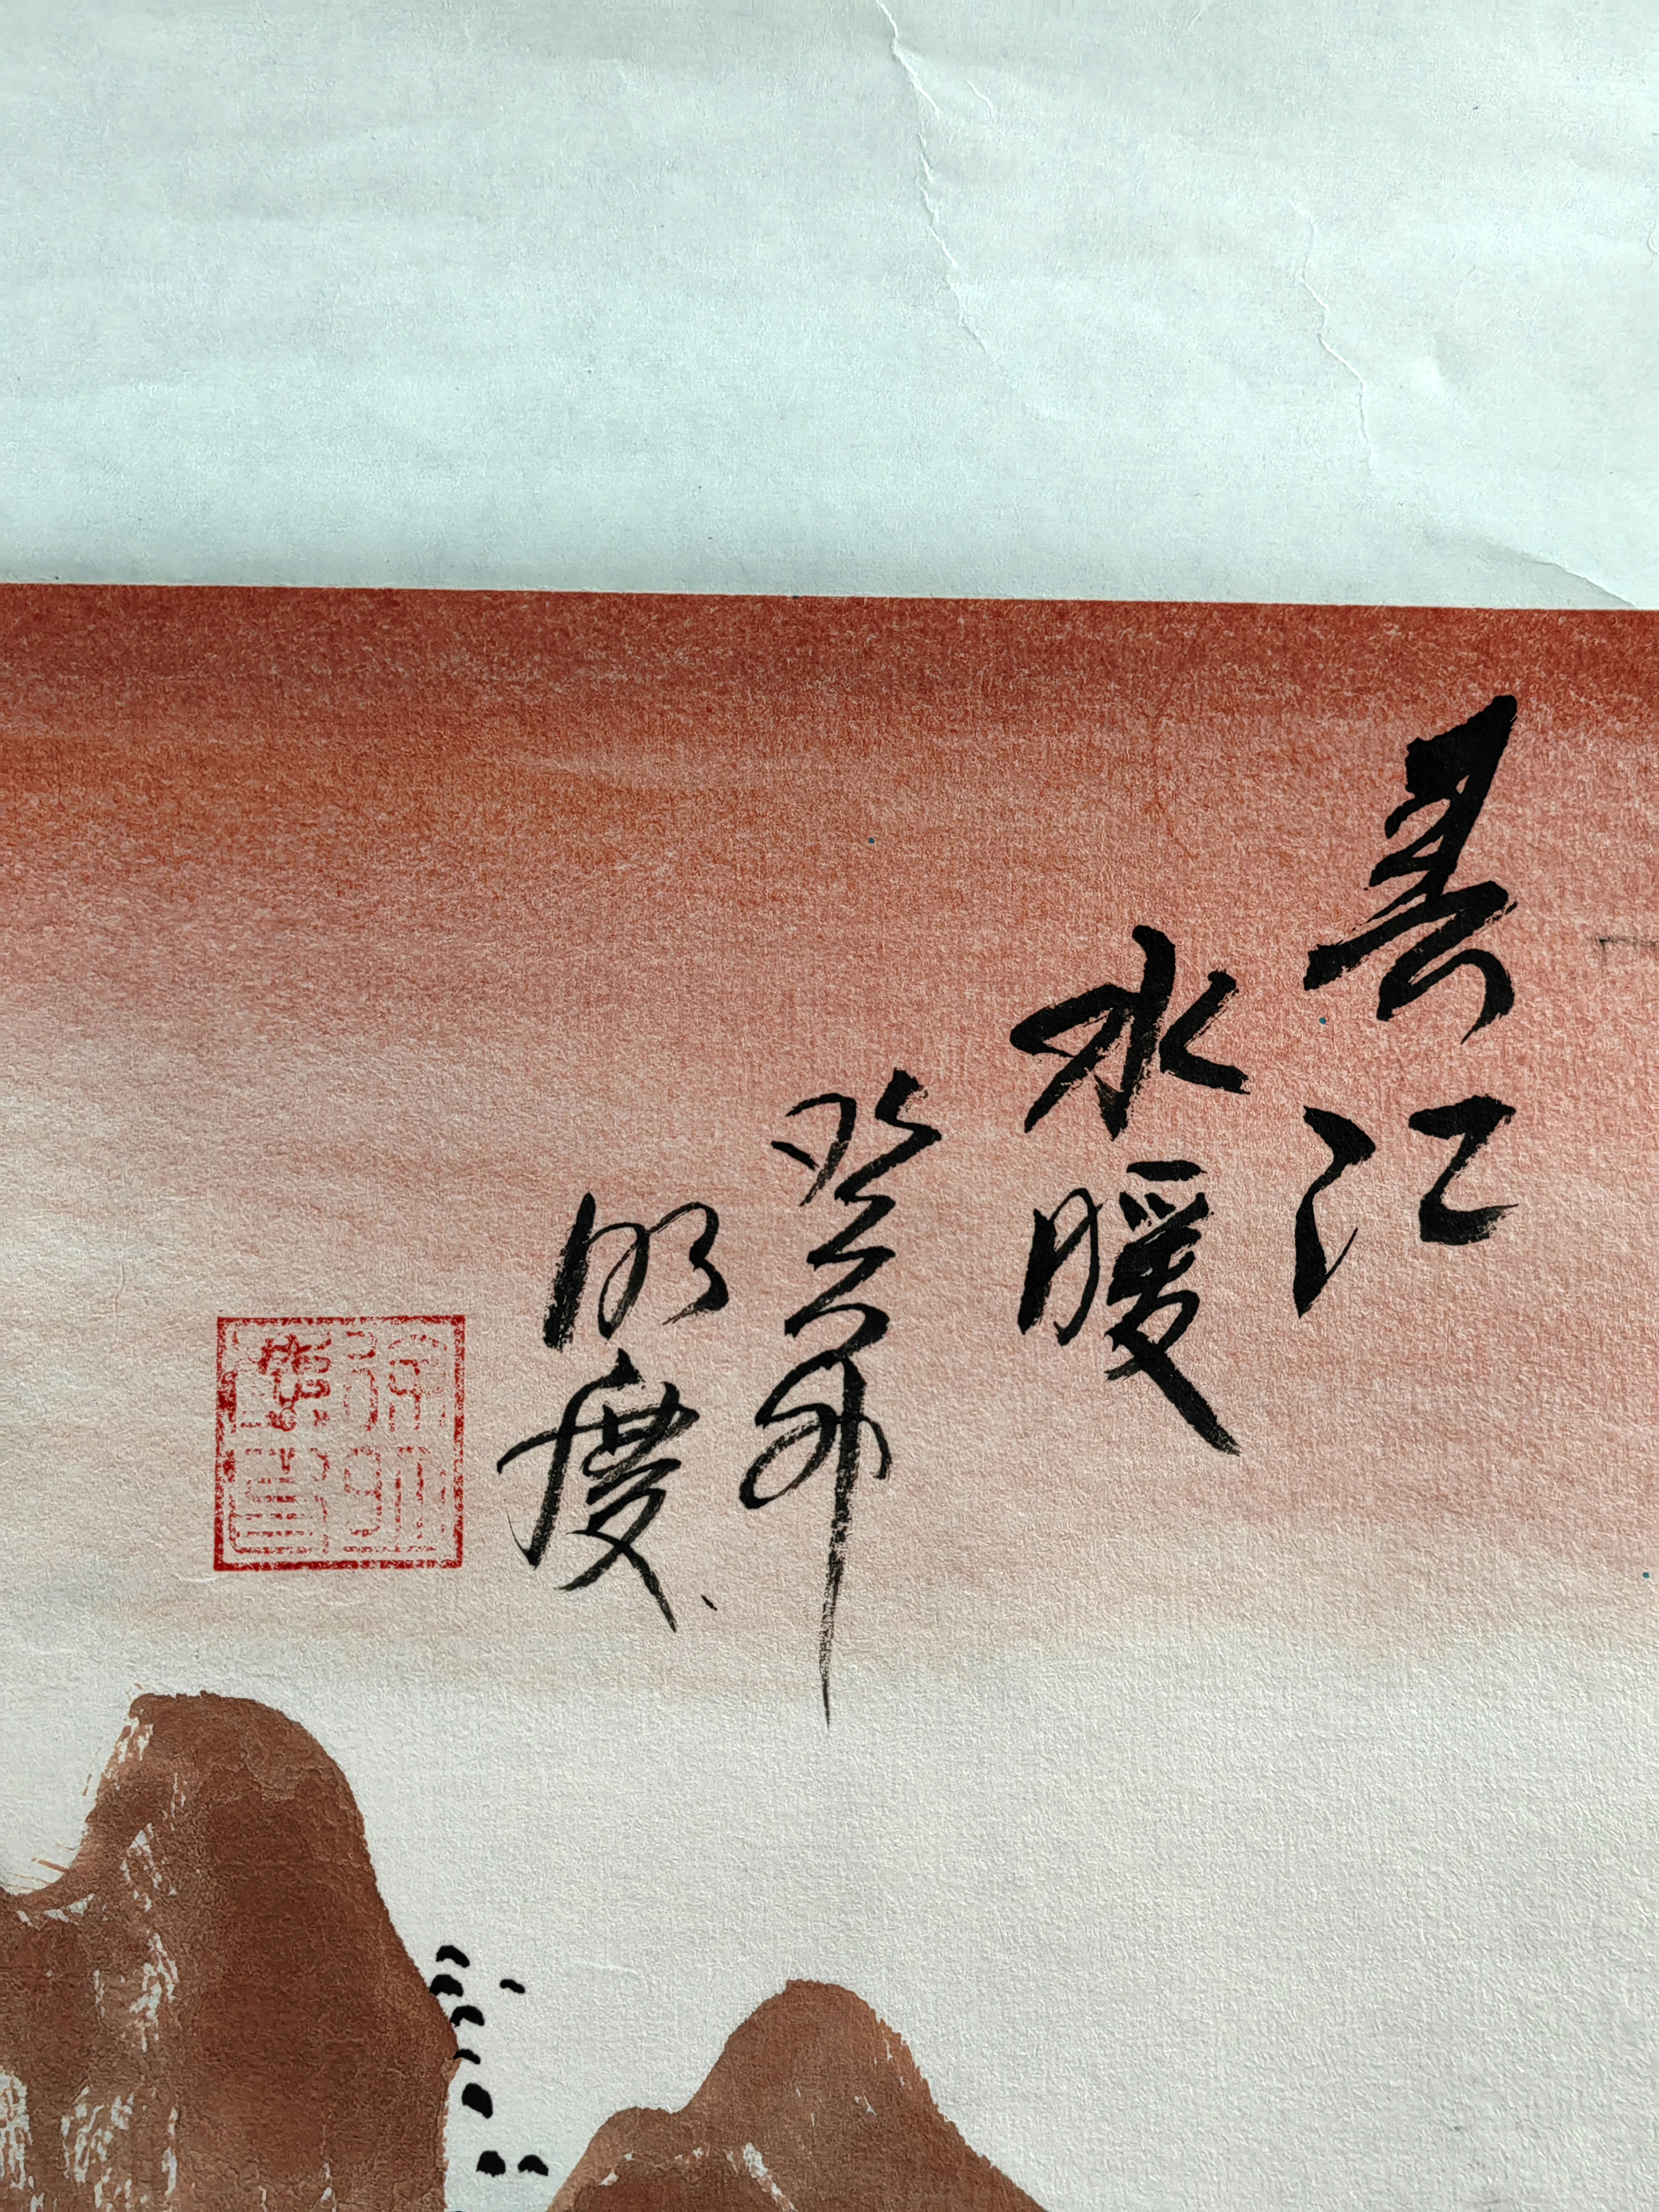 春江
水暖
癸卯
明度